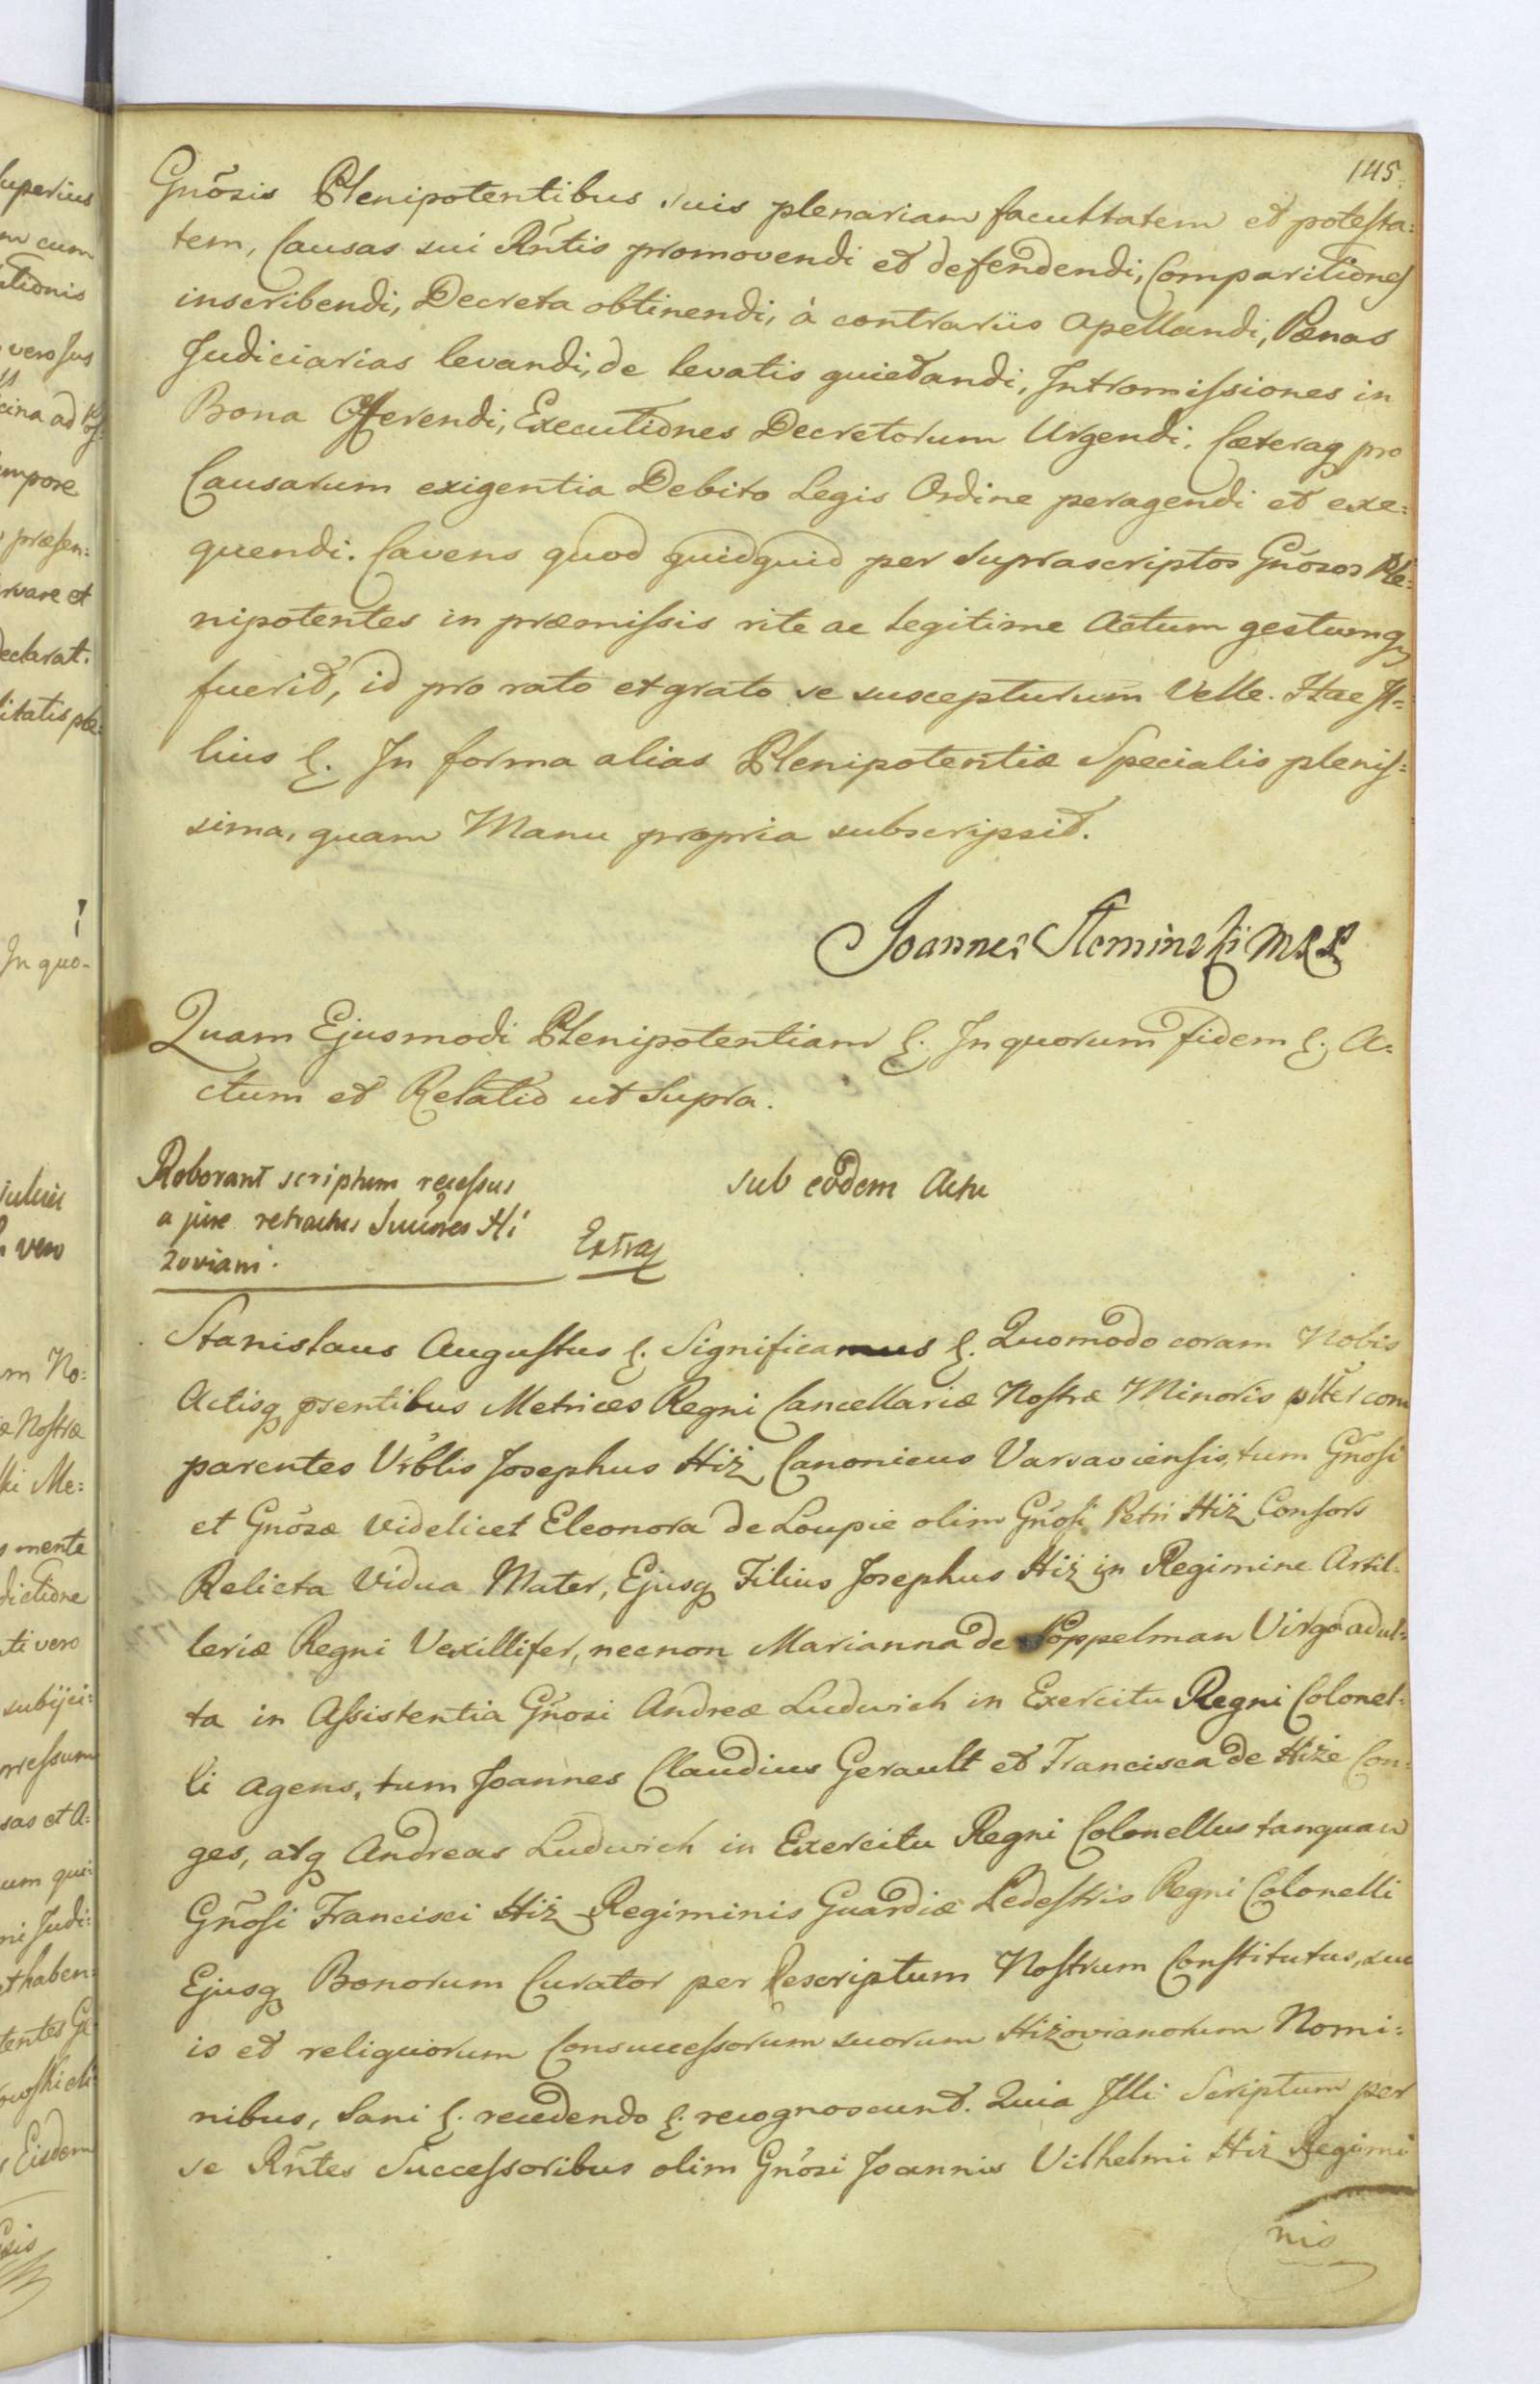 145.
Gnõsis Plenipotentibus suis plenariam facultatem et potesta:
tem, Causas sui Rñtis promovendi et defendendi, Comparitiones
inscribendi, Decreta obtinendi, à contrariis apellandi, Pænas
Judiciarias levandi, de levatis quietandi, Intromissiones in
Bona Offerendi, Executiones Decretorum Urgendi. Cæteraq pro
Causarum exigentia Debito Legis Ordine peragendi et exe:
quendi. Cavens quod quidquid per suprascriptos Gnõsos Ple:
nipotentes in præmissis rite ac legitime actum gestumq
fuerit, id pro rato et grato se suscepturum velle.
lius &. In forma alias Plenipotentiæ Specialis plenis:
sima, quam Manu propria subscripsit.
Joannes Słominski
Quam Ejusmodi Plenipotentiam &. In quorum fidem &. A:
ctum et Relatio ut supra.
Roborant scriptum recessus
a jure retractus Hi
zoviani.
Extraq
sub eodem Actu
Stanislaus Augustus &. Significamus &. Quomodo coram Nobis
Actisq psentibus Metrices Regni Cancellariæ Nostræ Minoris plter com
parentes Vrblis Josephus Hiż Canonicus Varsaviensis, tum Gnõsi
et Gnõsæ videlicet Eleonora de Loupie olim Gnõsi Petri Hiż Consors
Relicta Vidua Mater, Ejusq Filius Josephus Hiż in Regimine Artil:
leriæ Regni Vexillifer, necnon Marianna de Poppelman Virgo adul:
ta in Assistentia Gnõsi Andreæ Ludwich in Exercitu Regni Colonel:
li agens, tum Joannes Claudius Gerault et Francisca de Hiże Con:
ges, atq Andreas Ludwich in Exercitu Regni Colonellus tanquam
Gnõsi Francisci Hiż Regiminis Guardiæ Pedestris Regni Colonelli
Ejusq Bonorum Curator per Rescriptum Nostrum Constitutus, suo
is et reliquorum Consuccessorum suorum Hiżovianorum Nomi:
nibus, Sani &. recedendo &. recognoscunt. Quia Illi Scriptum per
se Rñtes Successoribus olim Gnõsi Joannis Vilhelmi Hiż Regimi
nis